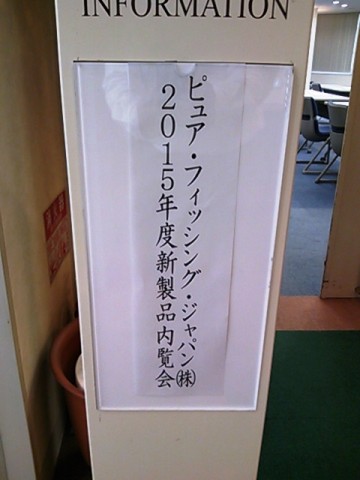 INFORMATION
ピュア・フィッシング・ジャパン㈱
2015年度新製品内覧会